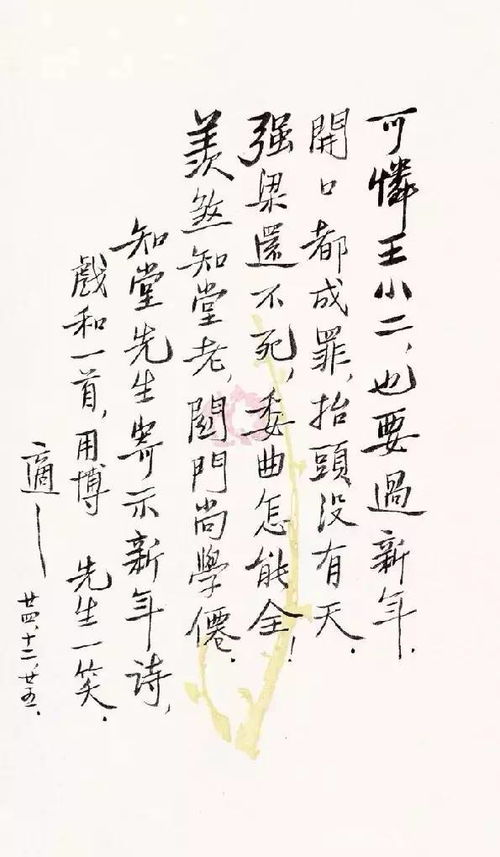 可憐王小二，也要過新年．
開口都成罪，抬頭没有天．
强梁還不死，委曲怎能全！
羨煞知堂老，關門尚學僊．
知堂先生寄示新年诗，
戲和一首，用博　先生一笑．
適
廿四、十二、廿五．